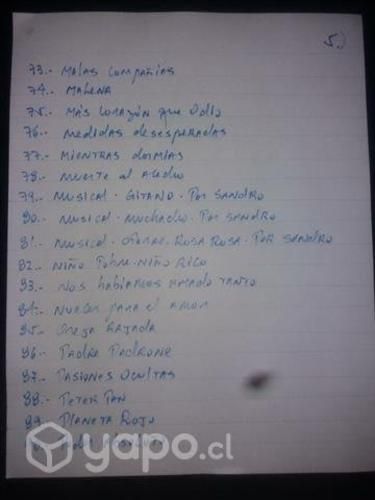 5.)
73.- MALAS COMPAÑIAS
74.- MALENA
75.- MÁS CORAZÓN que Odio
76.- Medidas desesperadas
77.- MIENTRAS dormías
78.- MUERTE al Acecho
79.- MUSICAL - GITANO - POR SANDRO
80.- MUSICAL - MUCHACHO - POR SANDRO
81.- MUSICAL - ROSA ROSA - POR SANDRO
82.- NIÑO POBRE-NIÑO RICO
83.- NOS habíamos AMADO TANTO
84.- para el AMOR
85.- Oreja RAJADA
86.- PADRE PADRONE
87.- PASIONES OCULTAS
88.- PETER PAN
89.- PLANETA ROJO
yapo.cl